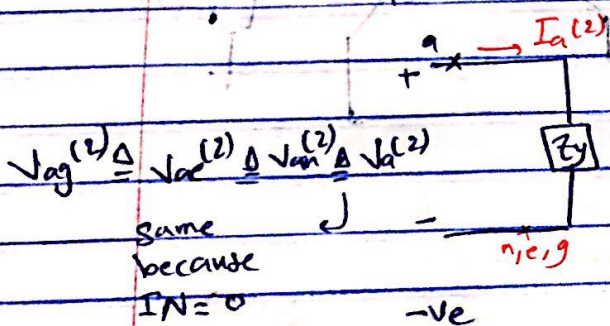 a
Ia(2)
+
Vag(2) ≜ Vae(2) ≜ Van(2) ≜ Va(2)
Zy
same
-
because
n,e,g
IN = 0
-ve